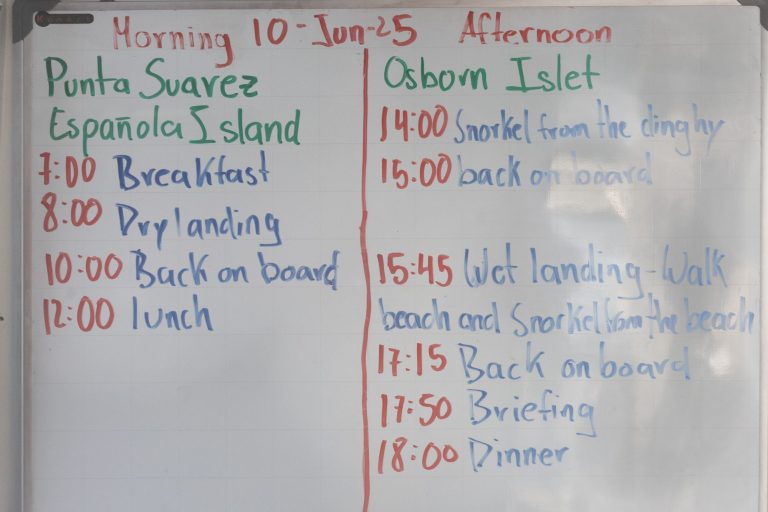 Morning 10-Jun-25 Afternoon
Punta Suarez
Española Island
7:00 Breakfast
8:00 Dry landing
10:00 Back on board
12:00 lunch
Osborn Islet
14:00 Snorkel from the dinghy
15:00 back on board
15:45 Wet landing-Walk
beach and Snorkel from the beach
17:15 Back on board
17:50 Briefing
18:00 Dinner